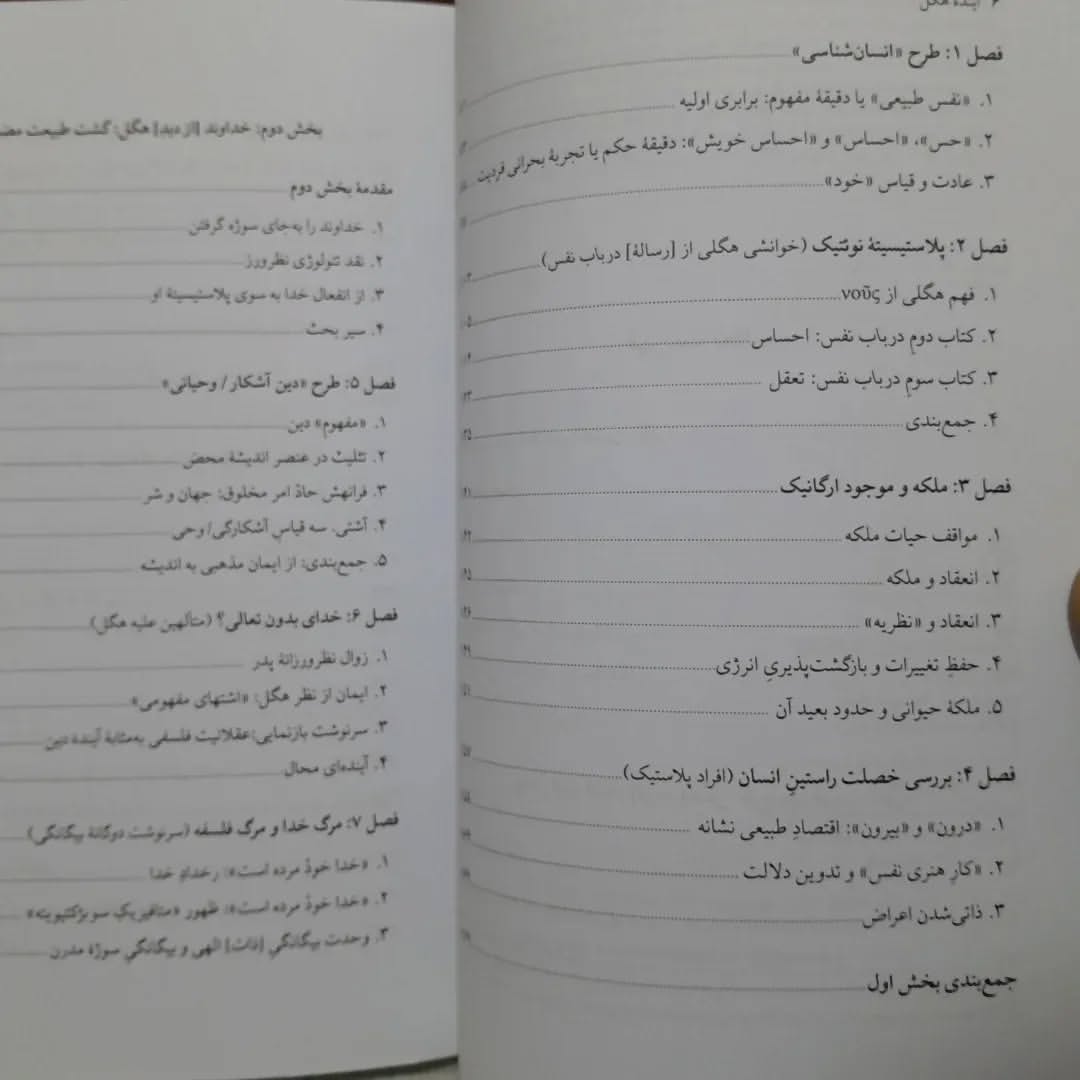 ۶ آیندهٔ هگل
فصل ۱: طرح «انسان‌شناسی»
۱. «نفس طبیعی» یا دقیقهٔ مفهوم: برابری اولیه
۲. «حس»، «احساس» و «احساس خویش»: دقیقهٔ حکم یا تجربهٔ بحرانی فردیت
۳. عادت و قیاس «خود»
فصل ۲: پلاستیسیتهٔ نوئتیک (خوانشی هگلی از [رسالهٔ] درباب نفس)
۱. فهم هگلی از νοῦς
۲. کتاب دومِ درباب نفس: احساس
۳. کتاب سومِ درباب نفس: تعقل
۴. جمع‌بندی
فصل ۳: ملکه و موجود ارگانیک
۱. مواقف حیات ملکه
۲. انعقاد و ملکه
۳. انعقاد و «نظریه»
۴. حفظِ تغییرات و بازگشت‌پذیریِ انرژی
۵. ملکهٔ حیوانی و حدود بعید آن
فصل ۴: بررسی خصلت راستینِ انسان (افراد پلاستیک)
۱. «درون» و «بیرون»: اقتصادِ طبیعی نشانه
۲. «کارِ هنری نفس» و تدوین دلالت
۳. ذاتی‌شدن اعراض
جمع‌بندی بخش اول
بخش دوم: خداوند [از دید] هگل: گشت طبیعت
مقدمهٔ بخش دوم
۱. خداوند را به‌جای سوژه گرفتن
۲. نقد تئولوژی نظرورز
۳. از انفعال خدا به سوی پلاستیسیتهٔ او
۴. سیر بحث
فصل ۵: طرح «دین آشکار/ وحیانی»
۱. «مفهوم» دین
۲. تثلیث در عنصر اندیشهٔ محض
۳. فرانهش حادّ امر مخلوق: جهان و شر
۴. آشتی. سه قیاسِ آشکارگی/ وحی
۵. جمع‌بندی: از ایمان مذهبی به اندیشه
فصل ۶: خدای بدون تعالی؟ (متألهین علیه هگل)
۱. زوال نظرورزانهٔ پدر
۲. ایمان از نظر هگل: «اشتهای مفهومی»
۳. سرنوشت بازنمایی:عقلانیت فلسفی به‌مثابهٔ آیندهٔ دین
۴. آینده‌ای محال
فصل ۷: مرگ خدا و مرگ فلسفه (سرنوشت دوگانهٔ بیگانگی)
۱. «خدا خودْ مرده است»: رخدادِ خدا
۲. «خدا خودْ مرده است»: ظهور «متافیزیکِ سوبژکتیویته»
۳. وحدت بیگانگیِ [ذات] الهی و بیگانگیِ سوژهٔ مدرن